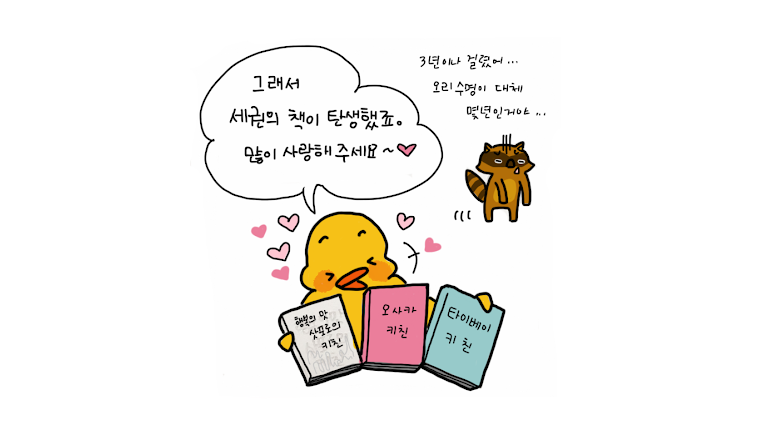 그래서
세권의 책이 탄생했죠.
많이 사랑해 주세요~♥
3년이나 걸렸어...
오리수명이 대체
몇년인거야...
행복의 맛
삿뽀로의
키친
오사카
키친
타이베이
키친